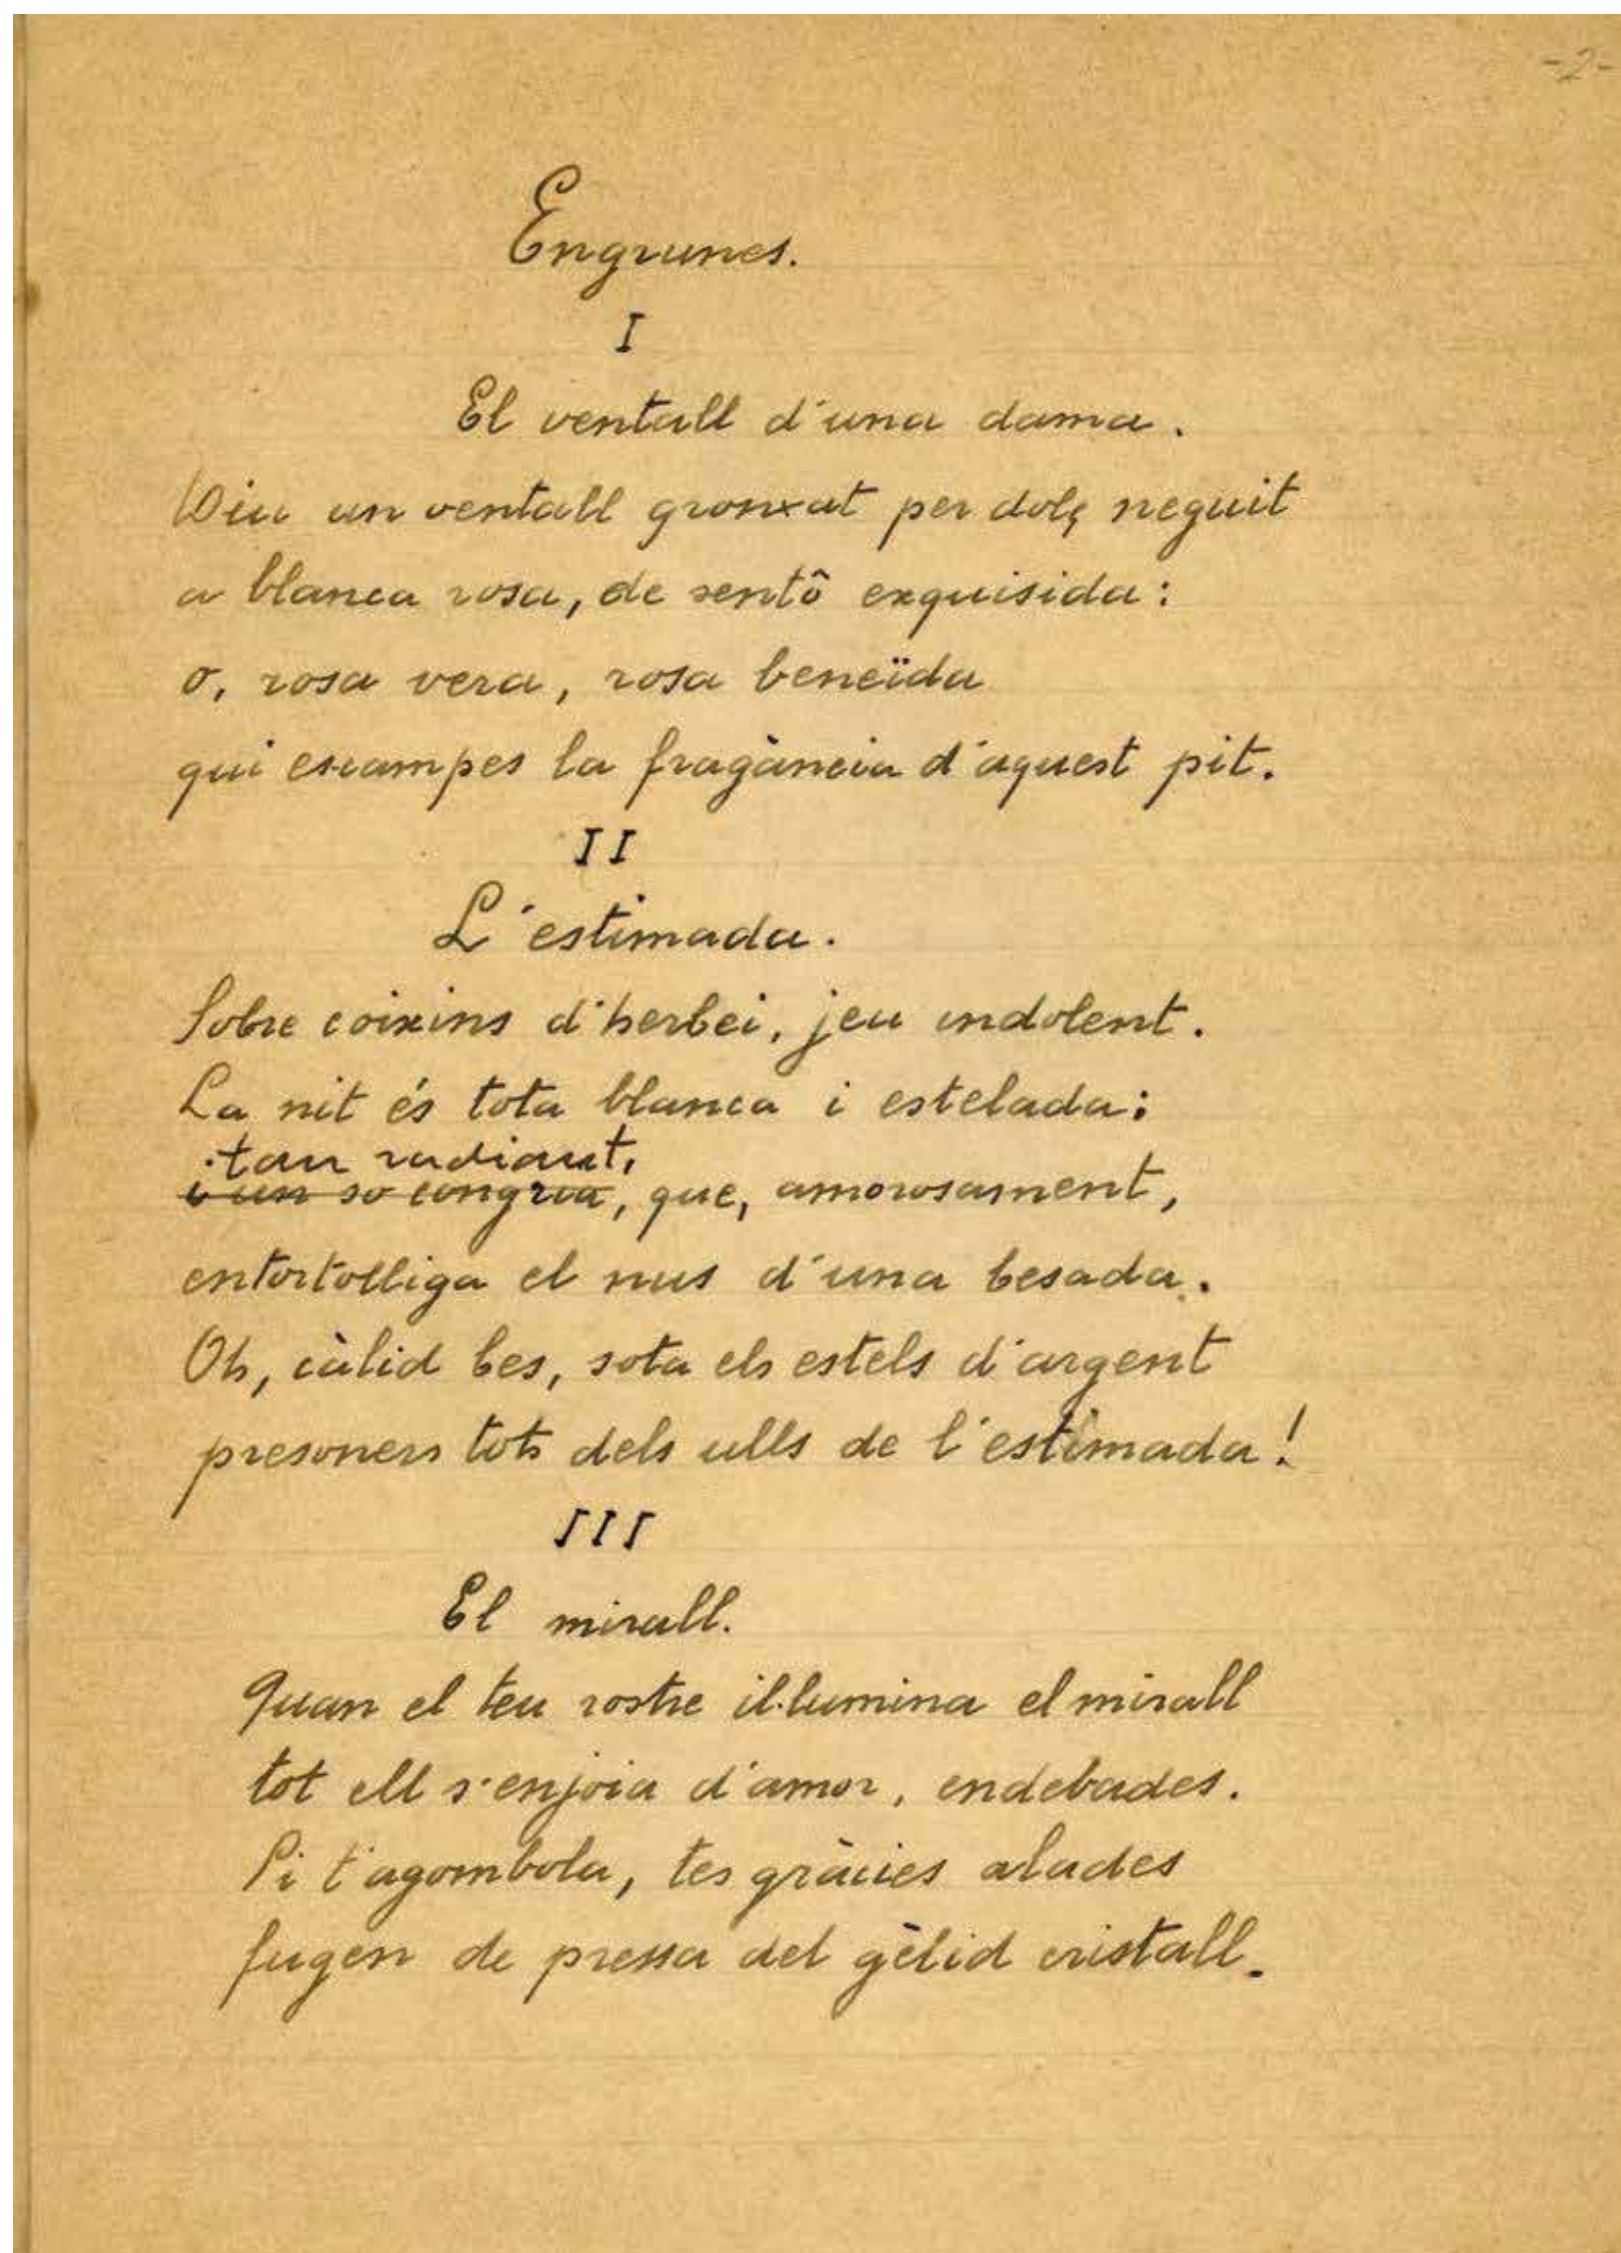 -2-
Engrunes.
I
El ventall d'una dama.
Diu un ventall gronxat per dolç neguit
a blanca rosa, de sentô exquisida:
o, rosa vera, rosa beneïda
qui escampes la fragància d'aquest pit.
II
L'estimada.
Sobre coixins d'herbei, jeu indolent.
La nit és tota blanca i estelada:
tan radiant,
i un so congria, que, amorosament,
entortolliga el nus d'una besada.
Oh, càlid bes, sota els estels d'argent
presoners tots dels ulls de l'estimada!
III
El mirall.
Quan el teu rostre il·lumina el mirall
tot ell s'enjoia d'amor, endebades.
Si t'agombola, tes gràcies alades
fugen de pressa del gèlid cristall.